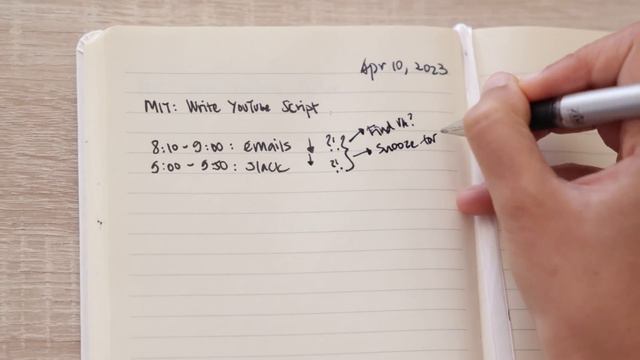 Apr 10, 2023
MIT: Write YouTube Script
8:10 - 9:00 : Emails ↓ ?! → Find VA?
9:00 - 9:30 : Slack ↓ ?! → Snooze for